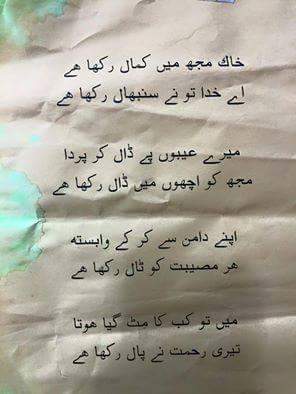 خاك مجھ میں کمال رکھا هے
اے خدا تو نے سنبھال رکھا هے
میرے عیبوں پے ڈال کر پردا
مجھ کو اچھوں میں ڈال رکھا هے
اپنے دامن سے کر کے وابسته
هر مصیبت کو ٹال رکھا هے
میں تو کب کا مٹ گیا هوتا
تیری رحمت نے پال رکھا هے